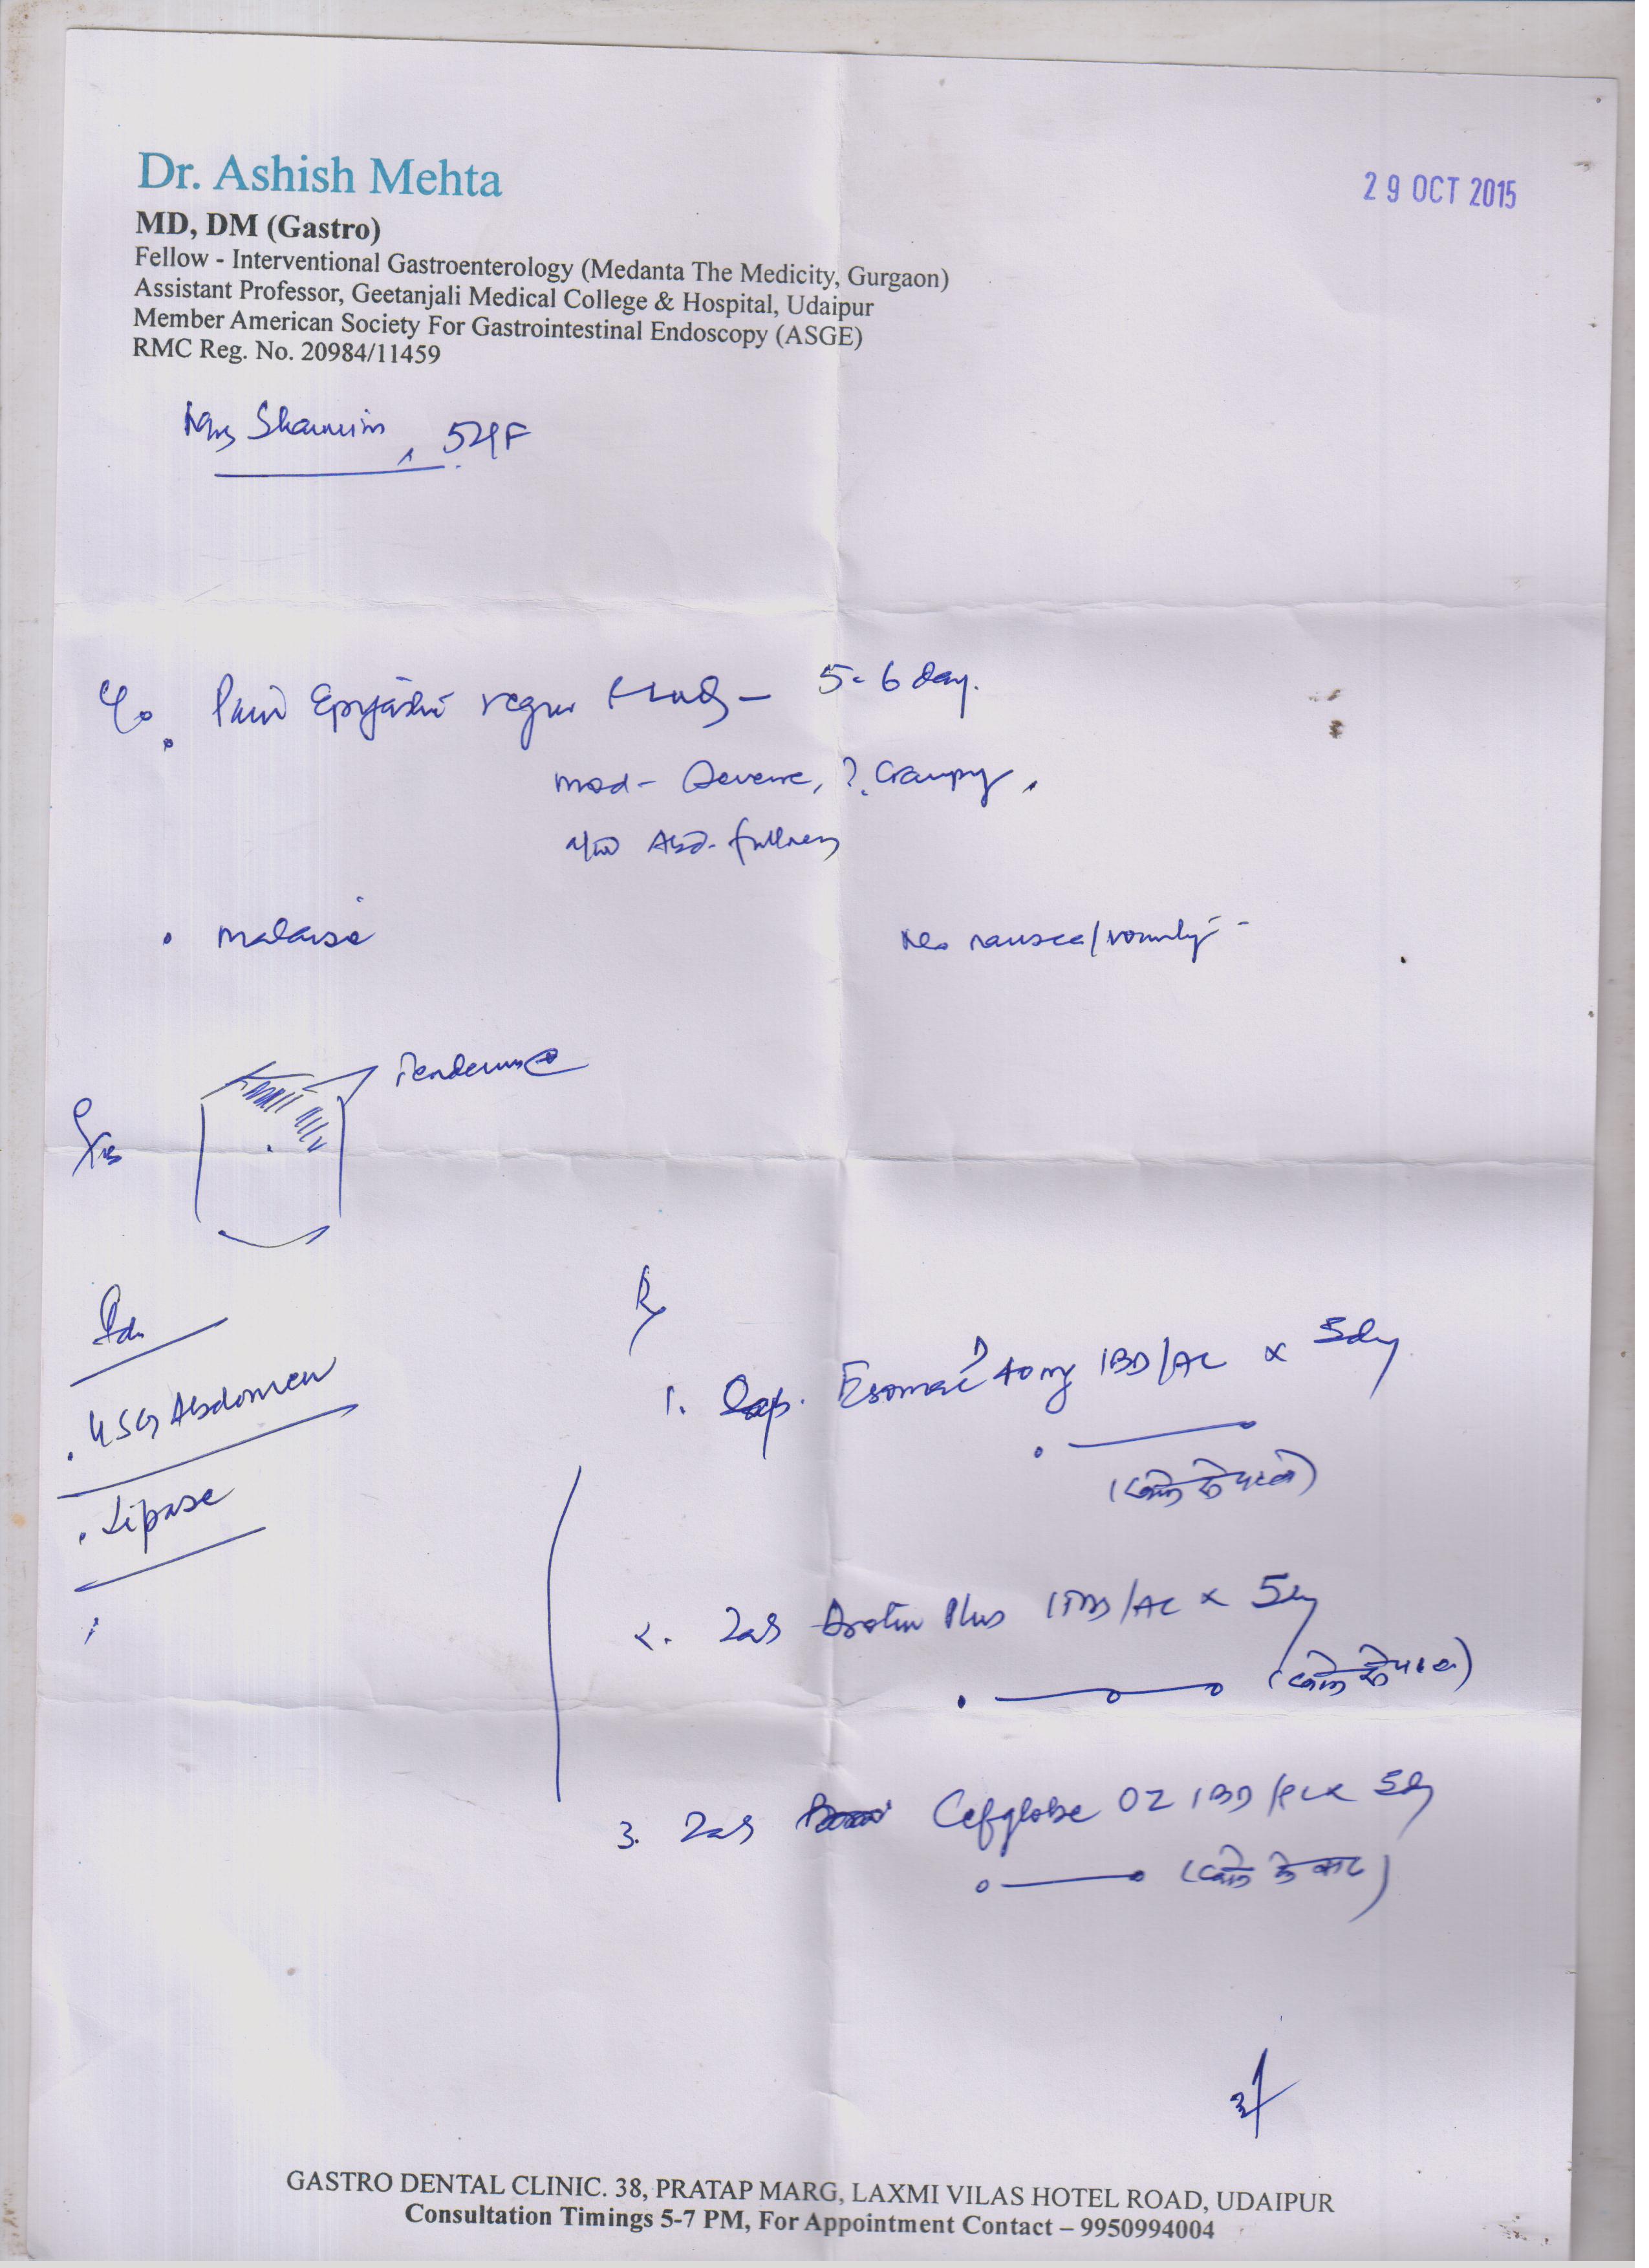 Dr. Ashish Mehta
29 OCT 2015
MD, DM (Gastro)
Fellow - Interventional Gastroenterology (Medanta The Medicity, Gurgaon)
Assistant Professor, Geetanjali Medical College & Hospital, Udaipur
Member American Society For Gastrointestinal Endoscopy (ASGE)
RMC Reg. No. 20984/11459
Shamim
C/o
Pain Epigastric region 5-6 day.
mod- Severe, ? Crampy,
a/w Abd. fullness
malaise
No nausea/vomiting
Tenderness
USG Abdomen
Lipase
Rx
1. Cap. 40 mg 1BD/AC x 5day
(खाने से पहले)
2. Tab Drotin Plus 1TDS/AC x 5day
(खाने से पहले)
3. Tab Cefglobe OZ 1BD/PC x 5day
(खाने के बाद)
GASTRO DENTAL CLINIC. 38, PRATAP MARG, LAXMI VILAS HOTEL ROAD, UDAIPUR
Consultation Timings 5-7 PM, For Appointment Contact – 9950994004